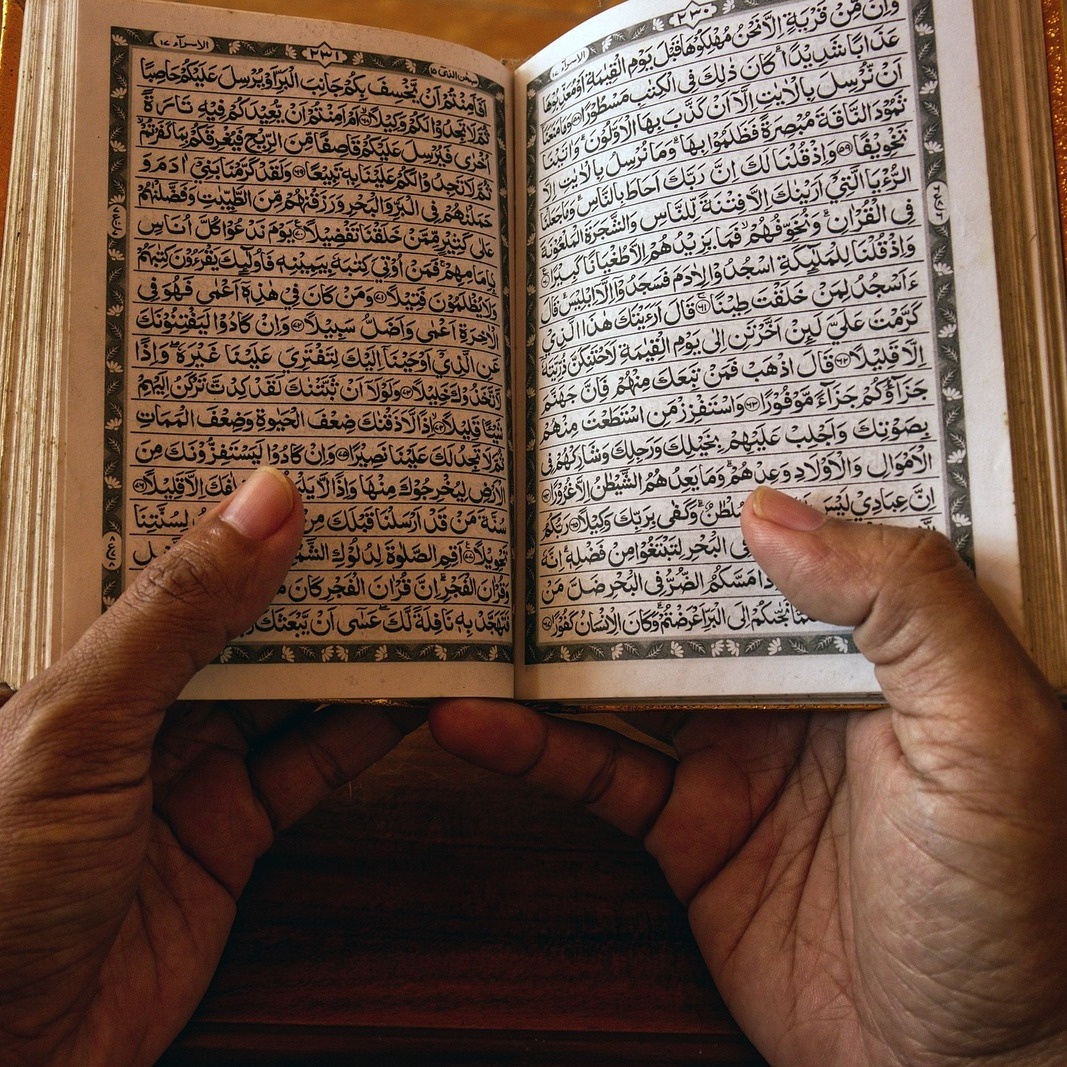 ٢٣٠
الاسراء ١٧
وَاِنْ مِّنْ قَرْيَةٍ اِلَّا نَحْنُ مُهْلِكُوْهَا قَبْلَ يَوْمِ الْقِيٰمَةِ اَوْ مُعَذِّبُوْهَا
عَذَابًا شَدِيْدًا ؕ كَانَ ذٰلِكَ فِي الْكِتٰبِ مَسْطُوْرًا ۝٥٨ وَمَا مَنَعَنَا
اَنْ نُّرْسِلَ بِالْاٰيٰتِ اِلَّا اَنْ كَذَّبَ بِهَا الْاَوَّلُوْنَ ؕ وَاٰتَيْنَا
ثَمُوْدَ النَّاقَةَ مُبْصِرَةً فَظَلَمُوْا بِهَا ؕ وَمَا نُرْسِلُ بِالْاٰيٰتِ اِلَّا
تَخْوِيْفًا ۝٥٩ وَاِذْ قُلْنَا لَكَ اِنَّ رَبَّكَ اَحَاطَ بِالنَّاسِ ؕ وَمَا جَعَلْنَا
الرُّءْيَا الَّتِيْ اَرَيْنٰكَ اِلَّا فِتْنَةً لِّلنَّاسِ وَالشَّجَرَةَ الْمَلْعُوْنَةَ
فِي الْقُرْاٰنِ ؕ وَنُخَوِّفُهُمْ ۙ فَمَا يَزِيْدُهُمْ اِلَّا طُغْيَانًا كَبِيْرًا ۝٦٠
وَاِذْ قُلْنَا لِلْمَلٰٓئِكَةِ اسْجُدُوْا لِاٰدَمَ فَسَجَدُوْٓا اِلَّآ اِبْلِيْسَ ؕ قَالَ
ءَاَسْجُدُ لِمَنْ خَلَقْتَ طِيْنًا ۝٦١ قَالَ اَرَءَيْتَكَ هٰذَا الَّذِيْ
كَرَّمْتَ عَلَيَّ لَئِنْ اَخَّرْتَنِ اِلٰى يَوْمِ الْقِيٰمَةِ لَاَحْتَنِكَنَّ ذُرِّيَّتَهٗٓ
اِلَّا قَلِيْلًا ۝٦٢ قَالَ اذْهَبْ فَمَنْ تَبِعَكَ مِنْهُمْ فَاِنَّ جَهَنَّمَ
جَزَآؤُكُمْ جَزَآءً مَّوْفُوْرًا ۝٦٣ وَاسْتَفْزِزْ مَنِ اسْتَطَعْتَ مِنْهُمْ
بِصَوْتِكَ وَاَجْلِبْ عَلَيْهِمْ بِخَيْلِكَ وَرَجِلِكَ وَشَارِكْهُمْ فِي
الْاَمْوَالِ وَالْاَوْلَادِ وَعِدْهُمْ ؕ وَمَا يَعِدُهُمُ الشَّيْطٰنُ اِلَّا غُرُوْرًا ۝٦٤
اِنَّ عِبَادِيْ لَيْسَ سُلْطٰنٌ ؕ وَكَفٰى بِرَبِّكَ وَكِيْلًا ۝٦٥ رَبُّكُمُ
الْبَحْرِ لِتَبْتَغُوْا مِنْ فَضْلِهٖ ؕ اِنَّهٗ
مَسَّكُمُ الضُّرُّ فِي الْبَحْرِ ضَلَّ مَنْ
نَجّٰىكُمْ اِلَى الْبَرِّ اَعْرَضْتُمْ ؕ وَكَانَ الْاِنْسَانُ كَفُوْرًا ۝٦٧
سبحن الذی ١٥
٢٣١
الاسراء ١٧
اَفَاَمِنْتُمْ اَنْ يَّخْسِفَ بِكُمْ جَانِبَ الْبَرِّ اَوْ يُرْسِلَ عَلَيْكُمْ حَاصِبًا
ثُمَّ لَا تَجِدُوْا لَكُمْ وَكِيْلًا ۝٦٨ اَمْ اَمِنْتُمْ اَنْ يُّعِيْدَكُمْ فِيْهِ تَارَةً
اُخْرٰى فَيُرْسِلَ عَلَيْكُمْ قَاصِفًا مِّنَ الرِّيْحِ فَيُغْرِقَكُمْ بِمَا كَفَرْتُمْ
ثُمَّ لَا تَجِدُوْا لَكُمْ عَلَيْنَا بِهٖ تَبِيْعًا ۝٦٩ وَلَقَدْ كَرَّمْنَا بَنِيْٓ اٰدَمَ وَ
حَمَلْنٰهُمْ فِي الْبَرِّ وَالْبَحْرِ وَرَزَقْنٰهُمْ مِّنَ الطَّيِّبٰتِ وَفَضَّلْنٰهُمْ
عَلٰى كَثِيْرٍ مِّمَّنْ خَلَقْنَا تَفْضِيْلًا ۝٧٠ يَوْمَ نَدْعُوْا كُلَّ اُنَاسٍۭ
بِاِمَامِهِمْ ۚ فَمَنْ اُوْتِيَ كِتٰبَهٗ بِيَمِيْنِهٖ فَاُولٰٓئِكَ يَقْرَءُوْنَ كِتٰبَهُمْ
وَلَا يُظْلَمُوْنَ فَتِيْلًا ۝٧١ وَمَنْ كَانَ فِيْ هٰذِهٖٓ اَعْمٰى فَهُوَ فِي
الْاٰخِرَةِ اَعْمٰى وَاَضَلُّ سَبِيْلًا ۝٧٢ وَاِنْ كَادُوْا لَيَفْتِنُوْنَكَ
عَنِ الَّذِيْٓ اَوْحَيْنَآ اِلَيْكَ لِتَفْتَرِيَ عَلَيْنَا غَيْرَهٗ ۖ وَاِذًا
لَّاتَّخَذُوْكَ خَلِيْلًا ۝٧٣ وَلَوْلَآ اَنْ ثَبَّتْنٰكَ لَقَدْ كِدْتَّ تَرْكَنُ اِلَيْهِمْ
شَيْـًٔا قَلِيْلًا ۝٧٤ اِذًا لَّاَذَقْنٰكَ ضِعْفَ الْحَيٰوةِ وَضِعْفَ الْمَمَاتِ
ثُمَّ لَا تَجِدُ لَكَ عَلَيْنَا نَصِيْرًا ۝٧٥ وَاِنْ كَادُوْا لَيَسْتَفِزُّوْنَكَ مِنَ
الْاَرْضِ لِيُخْرِجُوْكَ مِنْهَا وَاِذًا لَّا خِلٰفَكَ اِلَّا قَلِيْلًا ۝٧٦
سُنَّةَ مَنْ قَدْ اَرْسَلْنَا قَبْلَكَ مِنْ لِسُنَّتِنَا
تَحْوِيْلًا ۝٧٧ اَقِمِ الصَّلٰوةَ لِدُلُوْكِ الشَّمْسِ
وَقُرْاٰنَ الْفَجْرِ ؕ اِنَّ قُرْاٰنَ الْفَجْرِ كَانَ
فَتَهَجَّدْ بِهٖ نَافِلَةً لَّكَ ۖ عَسٰٓى اَنْ يَّبْعَثَكَ